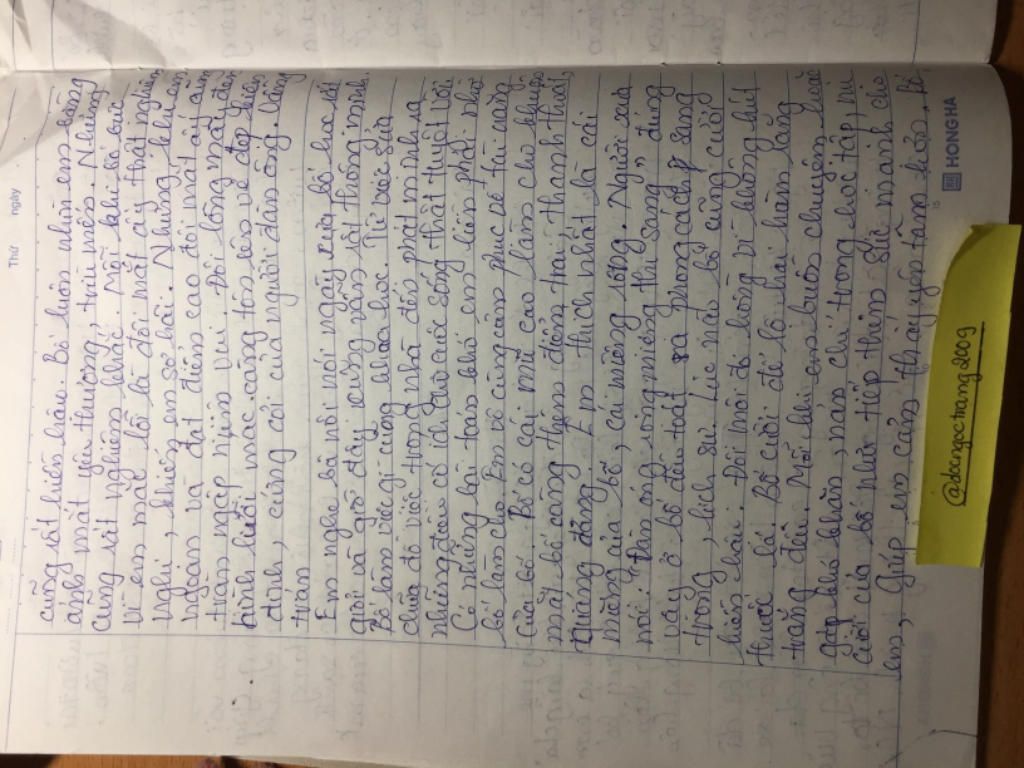 Thứ
ngày
cũng rất hiền hậu. Bố luôn nhìn em bằng
ánh mắt yêu thương, trìu mến. Nhưng
cũng rất nghiêm khắc. Mỗi khi bố bực
vì em mắc lỗi là đôi mắt ấy thật nghiêm
nghị, khiến em sợ hãi. Nhưng khi em
ngoan và đạt điểm cao đôi mắt ấy ần
tràn ngập niềm vui. Đôi lông mày đen
hình lưỡi mác càng tôn lên vẻ đẹp kiên
định, cứng cỏi của người đàn ông. Vầng
trán
Em nghe bà nội nói ngày xưa bố học rất
giỏi và giờ đây cũng vẫn rất thông minh.
Bố làm việc gì cũng khoa học. Từ việc sửa
chữa đồ việc trong nhà đến phát minh ra
những đều có ích cho cuộc sống thật tuyệt vời
Có những bài toán khó em liền phải nhờ
bố làm cho. Em vô cùng cảm phục về tài năng
của bố. Bố có cái mũi cao làm cho khuôn
mặt bố càng thêm điển trai, thanh thoát,
Quảng đãng. Em thích nhất là cái
miệng của bố, cái miệng rộng. Người xưa
nói: "Đàn ông rộng miệng thì sang" đúng
vậy ở bố đều toát ra phong cách sang
trọng, lịch sự. Lúc nào bố cũng cười
hiền hậu. Đôi môi đỏ hồng vì không hút
thuốc lá. Bố cười để lộ hai hàm răng
trắng đều. Mỗi khi em buồn chuyện hoặc
gặp khó khăn, nản chí trong học tập, nụ
cười của bố như tiếp thêm sức mạnh cho
em, giúp em cảm thấy yên tâm hơn. Bố
HONG HA
@doangoctrang2009